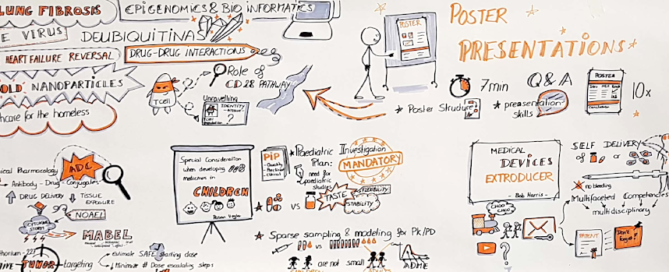 LUNG FIBROSIS
EPIGENOMICS & BIO INFORMATICS
E VIRUS
DEUBIQUITINAS
HEART FAILURE REVERSAL
DRUG-DRUG INTERACTIONS
OLD NANOPARTICLES
thcare for the homeless
T cell
Role of
CD28 PATHWAY
Unravelling
IDENTITY
?
POSTER
POSTER
PRESENTATIONS
7min
Q&A
POSTER
10x
Poster Structure
presentation
skills
ical Pharmacology
ADC
Antibody - Drug - Conjugates
DRUG DELIVERY
TISSUE
EXPOSURE
NOAEL
MABEL
TUMOR targeting
estimate SAFE starting dose
Minimise # Dose escalating steps
Special Consideration
when developing
medicines in
CHILDREN
PIP
Paediatric Investigation
Plan:
MANDATORY
need for
paediatric
studies
VS
TASTE
FLEXIBILITY
STABILITY
Sparse sampling & modeling for PK/PD
VS
are not small
ADME
MEDICAL
DEVICES
EXTRODUCER
- Bob Harris -
SELF DELIVERY
of
no bleeding
Multifaceted Competencies
multidisciplinary
PATENT
?